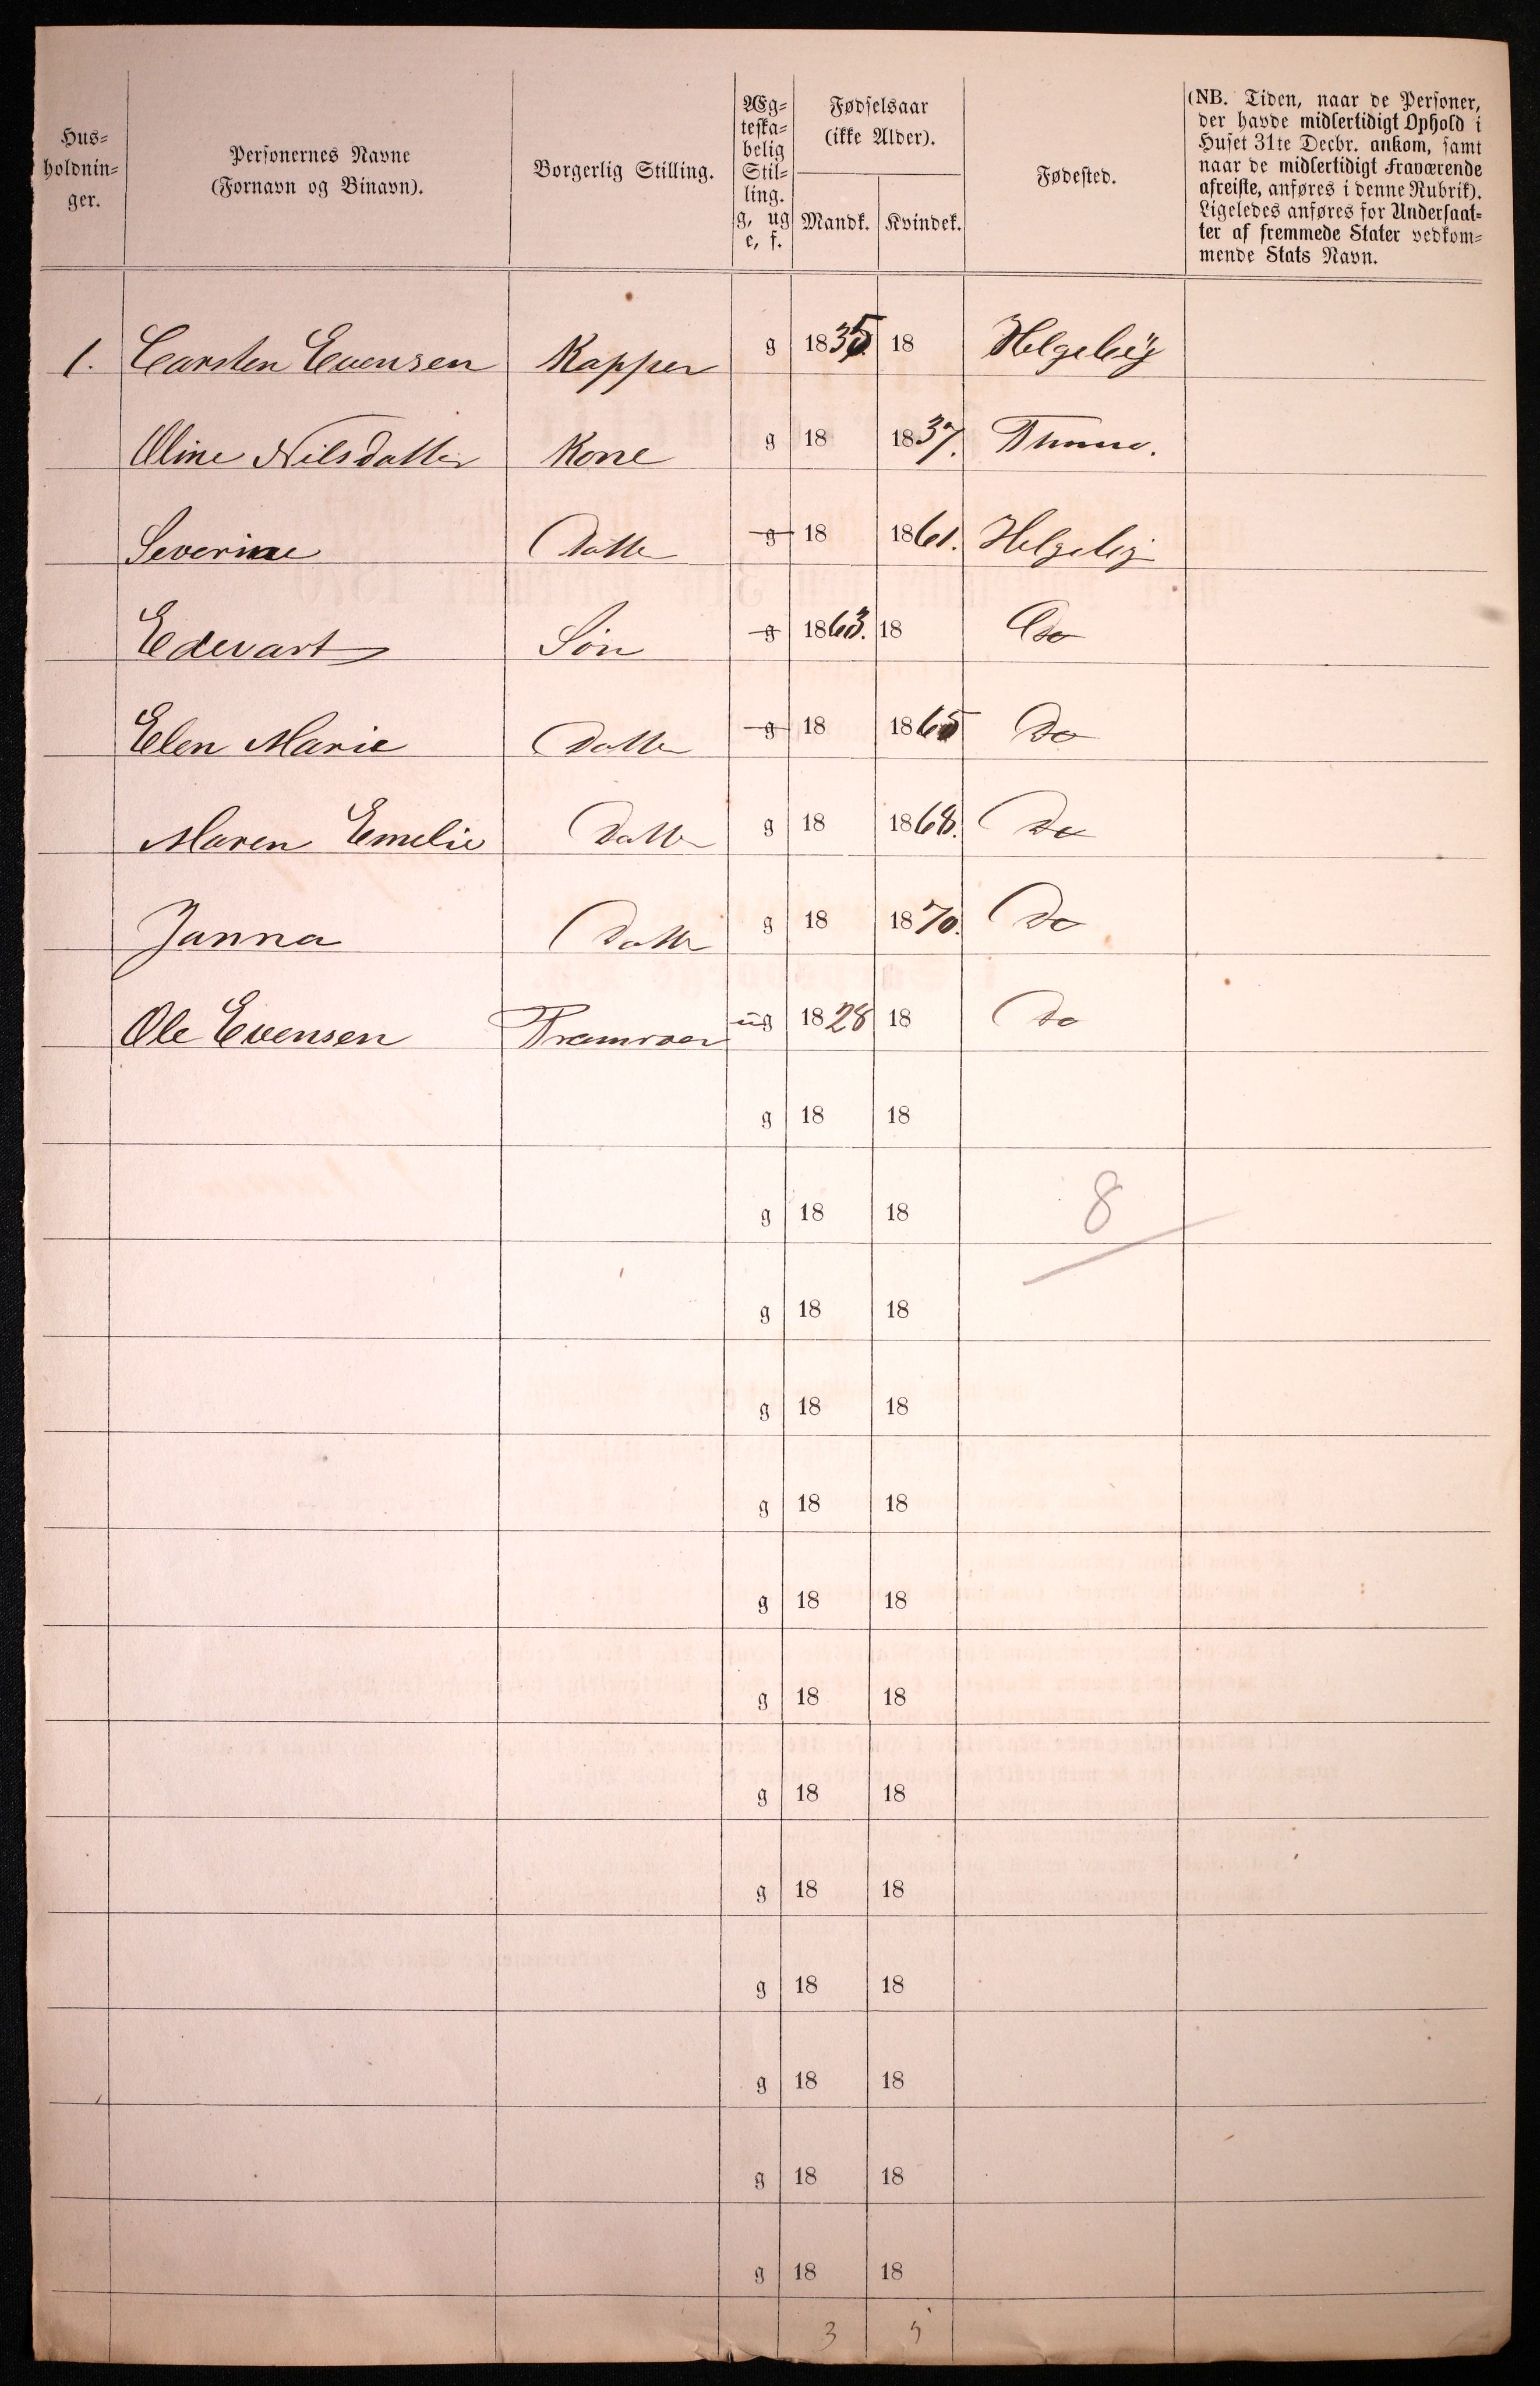 Hus=
holdnin=
ger.
Personernes Navne
(Fornavn og Binavn).
Borgerlig Stilling.
Æg=
teska=
belig
Stil=
ling.
g, ug
e, f.
Fødselsaar
(ikke Alder).
Mandk. Kvindek.
Fødested.
(NB. Tiden, naar de Personer,
der havde midlertidigt Ophold i
Huset 31te Decbr. ankom, samt
naar de midlertidigt Fraværende
afreiste, anføres i denne Rubrik).
Ligeledes anføres for Undersaat=
ter af fremmede Stater vedkom=
mende Stats Navn.
1. Carsten Evensen Kapper g 1835 18 Helgebÿ
Oline Nilsdatter Kone g 18 1837. Thune.
Severine Datter g 18 1861. Helgeby
Edevart Sön g 1863. 18 Do
Elen Marie Datter g 18 1865 Do
Maren Emelie Datter g 18 1868. Do
Janna Datter g 18 1870. Do
Ole Evensen ug 1828 18 Do
g 18 18
g 18 18 8
g 18 18
g 18 18
g 18 18
g 18 18
g 18 18
g 18 18
g 18 18
g 18 18
g 18 18
g 18 18
g 18 18
3 5